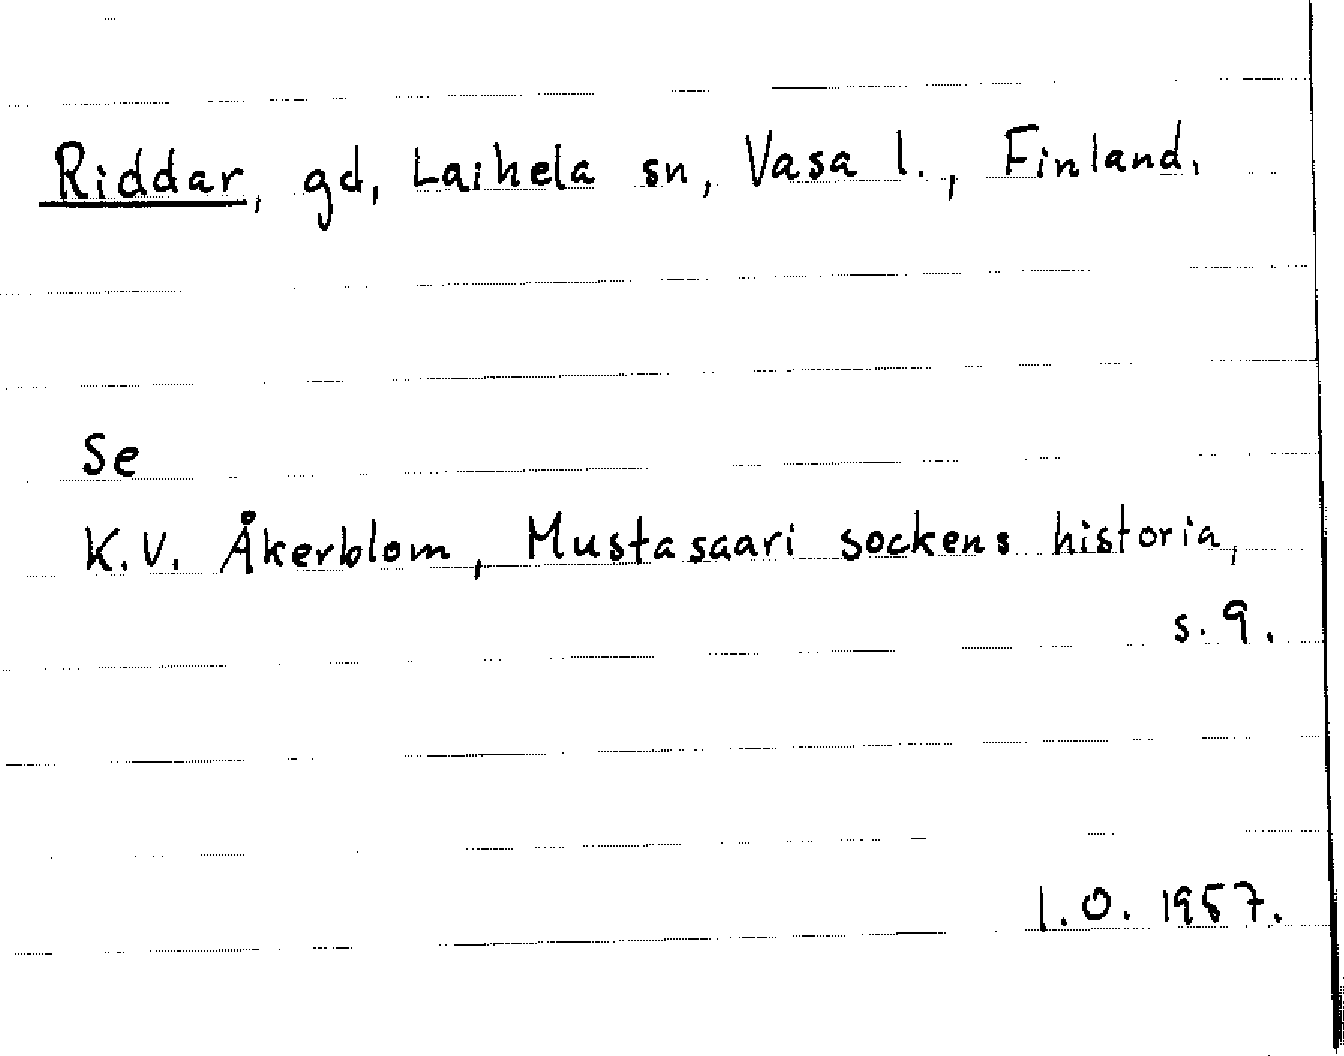 Riddar, gd, Laihela sn, Vasa l., Finland.
Se
K.V. Åkerblom, Mustasaari sockens historia,
s. 9.
I.O. 1957.